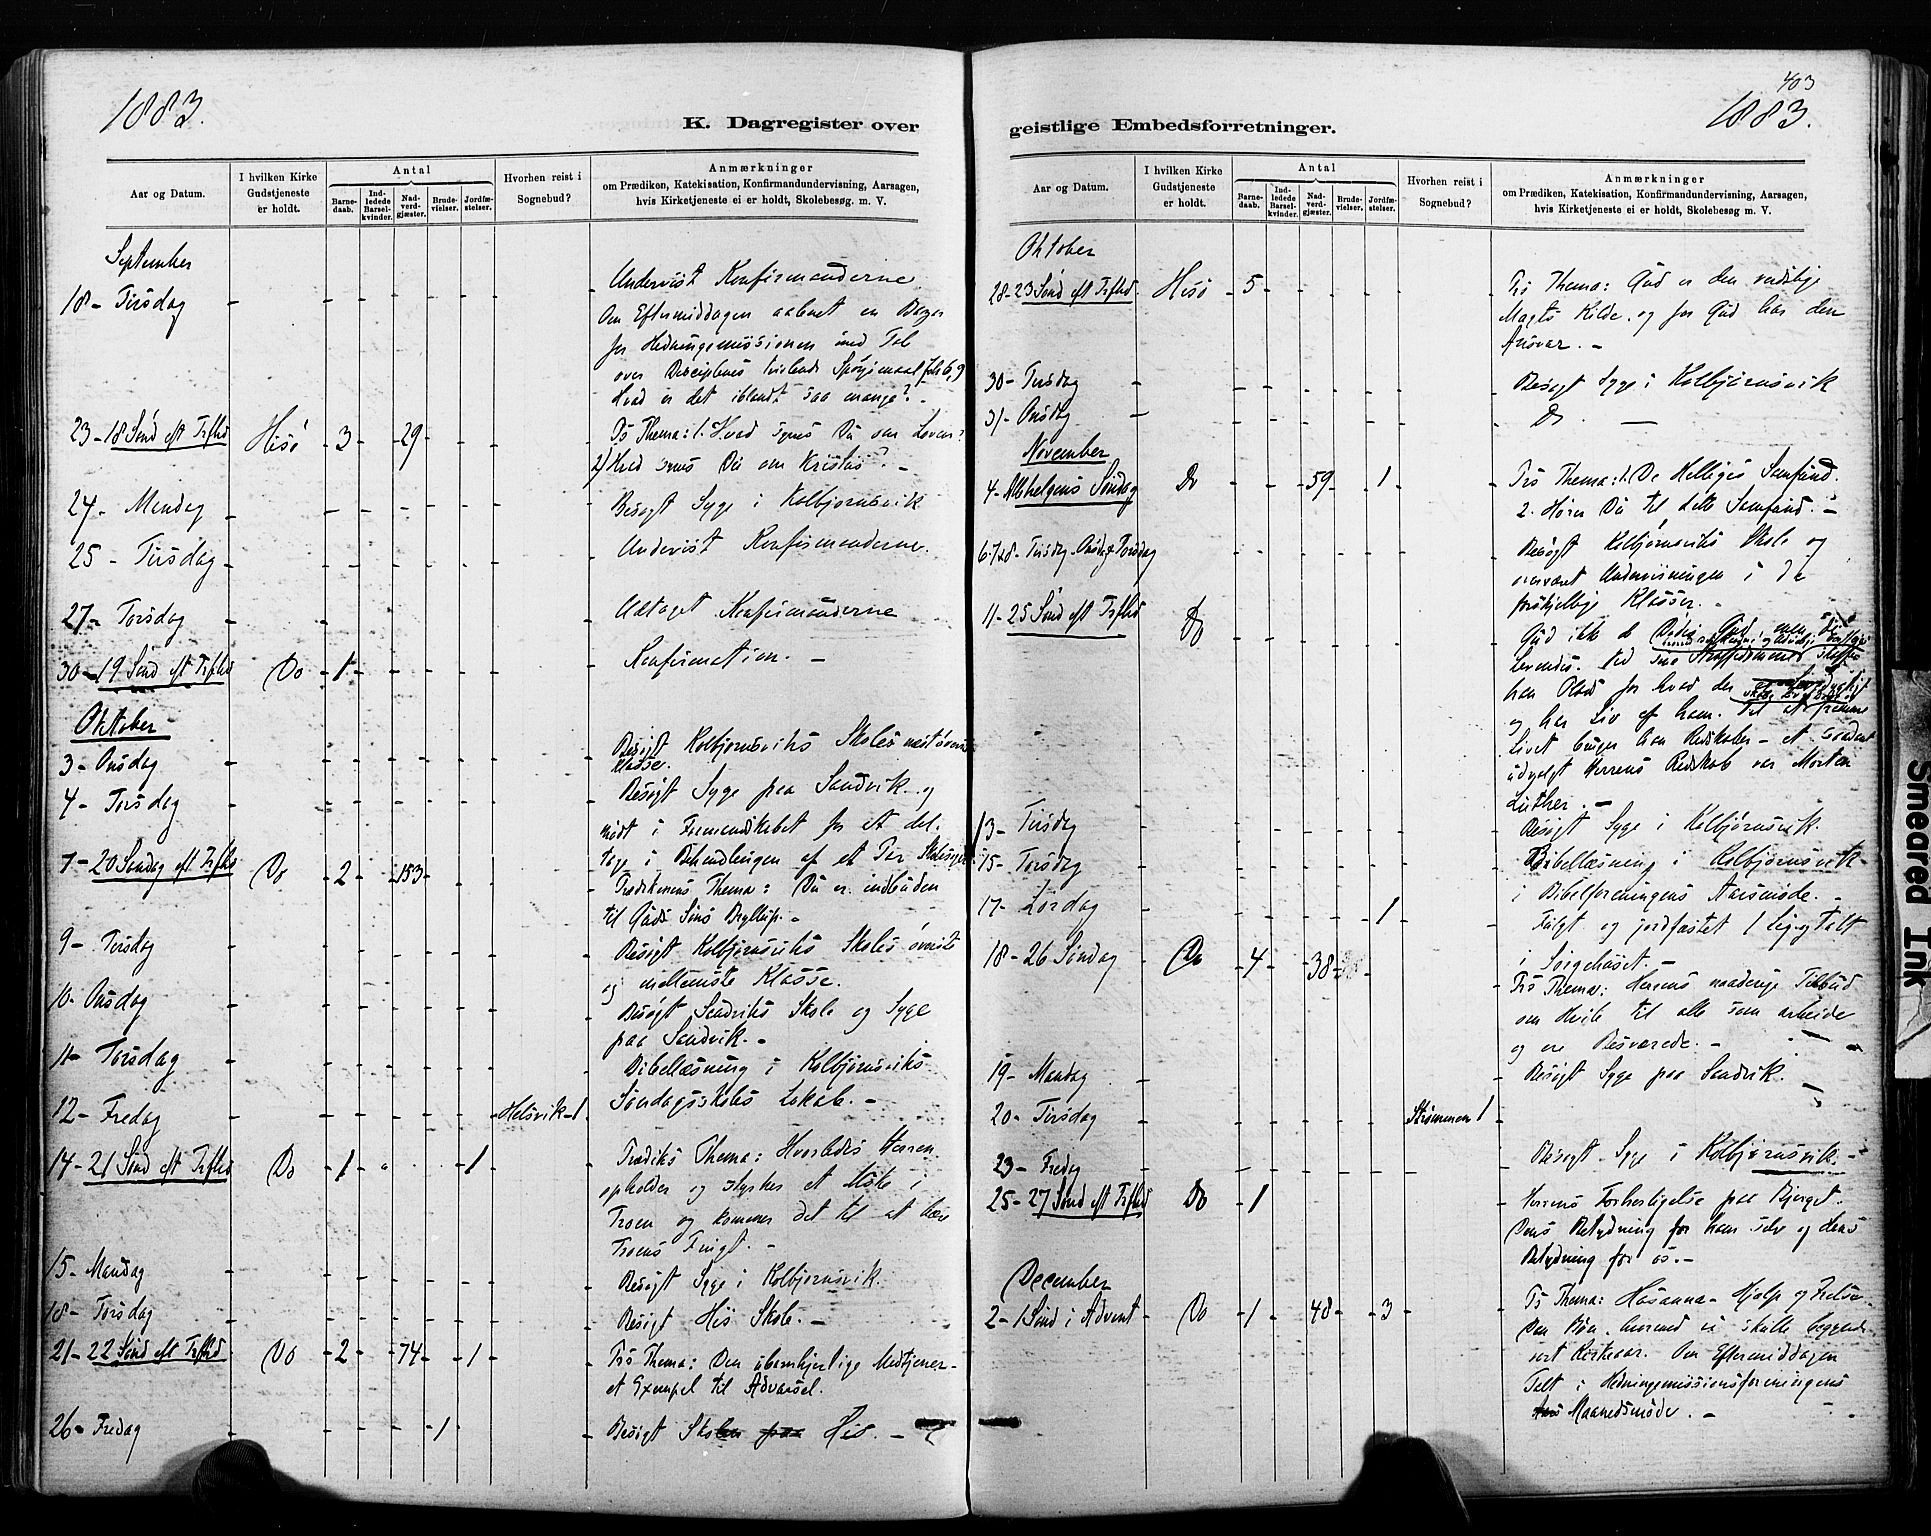 403
1883.
1883.
K. Dagregister over
geistlige Embedsforretninger.
Aar og Datum.
I hvilken Kirke
Gudstjeneste
er holdt.
Antal
Barne-
daab.
Ind-
ledede
Barsel-
kvinder.
Nad-
verd-
gjæster.
Brude-
vielser.
Jordfæ-
stelser.
Hvorhen reist i
Sognebud?
Anmærkninger
om Prædiken, Katekisation, Konfirmandundervisning, Aarsagen,
hvis Kirketjeneste ei er holdt, Skolebesøg m. V.
September
18- Tirsdag
Underviist Konfirmanderne.
Om Eftermiddagen aabnet en Bazar
for Hedningemissionen med Tal
over Disciplenes tvivlende Spørgsmaal Joh 6, 9
Hvad er det iblandt saa mange? -
23-18 Sønd eft Trftid Hisø 3 29 Ps Thema: 1. Hvad synes Du om Loven?
2) Hvad synes Du om Kristus? -
24- Mandag Besøgt Syge i Kolbjørnsvik
25 - Tirsdag Underviist Konfirmanderne.
27- Torsdag Udtaget Konfirmanderne
30-19 Sønd eft Trftid Do 1 Konfirmation. -
Oktober
3- Onsdag Besøgt Kolbjørnsviks Skoles næstøverste
Klasse.
4- Torsdag Besøgt Syge paa Sandvik og
mødt i Formandskabet for at del-
tage i Behandlingen af et Par Skolesager
7- 20 Søndag eft Trftid Do 2 153 Prædikenens Thema: Du er indbuden
til Guds Søns Bryllup. -
9- Tirsdag Besøgt Kolbjørnsviks Skoles øverste
og mellemste Klasse.
10- Onsdag Besøgt Sandviks Skole og Syge
paa Sandvik. -
11- Torsdag Bibellæsning i Kolbjørnsviks
Søndagsskoles Lokale. -
12- Fredag Helsvik-1
14-21 Sønd eft Trftid Do 1 1 Prædiks Thema: Hvorledes Herren
opholder og styrker et Møde i
Troen og kommer det til at bære
Troens Frugt. -
15- Mandag Besøgt Syge i Kolbjørnsvik.
18- Torsdag Besøgt His Skole. -
21- 22 Sønd eft Trftid Do 2 74 1 Ps Thema: Den ubarmhjertige Medtjener-
et Exempel til Advarsel.
26- Fredag 1 Besøgt Skolen paa His. -
Aar og Datum.
I hvilken Kirke
Gudstjeneste
er holdt.
Antal
Barne-
daab.
Ind-
ledede
Barsel-
kvinder.
Nad-
verd-
gjæster.
Brude-
vielser.
Jordfæ-
stelser.
Hvorhen reist i
Sognebud?
Anmærkninger
om Prædiken, Katekisation, Konfirmandundervisning, Aarsagen,
hvis Kirketjeneste ei er holdt, Skolebesøg m. V.
Oktober
28- 23 Sønd eft Trftid Hisø 5 Ps Thema: Gud er den verdslige
Magts Kilde og for Gud har den
Ansvar. -
30- Tirsdag Besøgt Syge i Kolbjørnsvik
31- Onsdag Do
November
4- Allehelgens Søndag Do 59 1 Ps Thema: 1. De Helliges Samfund.
2. Hører Du til dette Samfund. -
6.7 & 8- Tirsdag Onsdag & Torsdag Besøgt Kolbjørnsviks Skole og
overværet Undervisningen i de
forskjellige Klasser. -
11- 25 Sønd eft Trftid Do Gud ikke de Dødes Gud men de
Levendes. Ved sine Straffedomme
han Plads for hvad der
og har Liv af ham. Til at fremme
Livet bruger han Redskaber - et saadant
udvalgt Herrens Redskab var Morten
Luther. -
13- Tirsdag Besøgt Syge i Kolbjørnsvik.
15- Torsdag Bibellæsning i Kolbjørnsvik
i Bibelforeningens Aarsmøde. -
17- Lørdag 1 Fulgt og jordfæstet 1 Lig og talt
i Sørgehuset. -
18- 26 Søndag Do 4 38 Ps Thema: Herrens naaderige Tilbud
om Hvile til alle som arbeide
og ere Besværede. -
19- Mandag Besøgt Syge paa Sandvik.
20- Tirsdag Strømmen 1
23- Fredag Besøgt Syge i Kolbjørnsvik. -
25- 27 Sønd eft Trftid Do 1 Herrens Forherligelse paa Bjerget.
Dens Betydning for ham selv og dens
Betydning for os. -
December
2- 1 Sønd i Advent Do 1 48 3 Ps Thema: Hosanna- Hjælp og Frelse.
Den Bøn, hvormed vi skulle begynde
vort Kirkeaar. Om Eftermiddagen
Talt i Hedningemissionsforeningens
Maanedsmøde. -
Smeared Ink